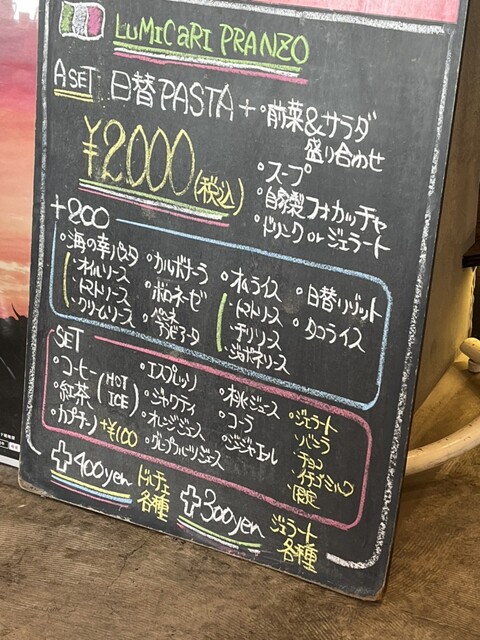 LUMICARI PRANZO
A SET 日替PASTA + ・前菜&サラダ
盛り合わせ
¥2000(税込)
・スープ
・自家製フォカッチャ
・ドリンク or ジェラート
+200
・海の幸パスタ
・オイルソース
・トマトソース
・クリームソース
・カルボナーラ
・ボロネーゼ
・ペンネ
アラビアータ
・オムライス
・トマトソース
・チリソース
・日替リゾット
・タコライス
SET
・コーヒー
・紅茶
(HOT
ICE)
・カプチーノ +¥100
・エスプレッソ
・ジャワティ
・オレンジジュース
・グレープフルーツジュース
・桃ジュース
・コーラ
・ジンジャエール
・ジェラート
・バニラ
・チョコ
・イチゴミルク
・限定
+400yen ドルチェ
各種
+300yen ジェラート
各種